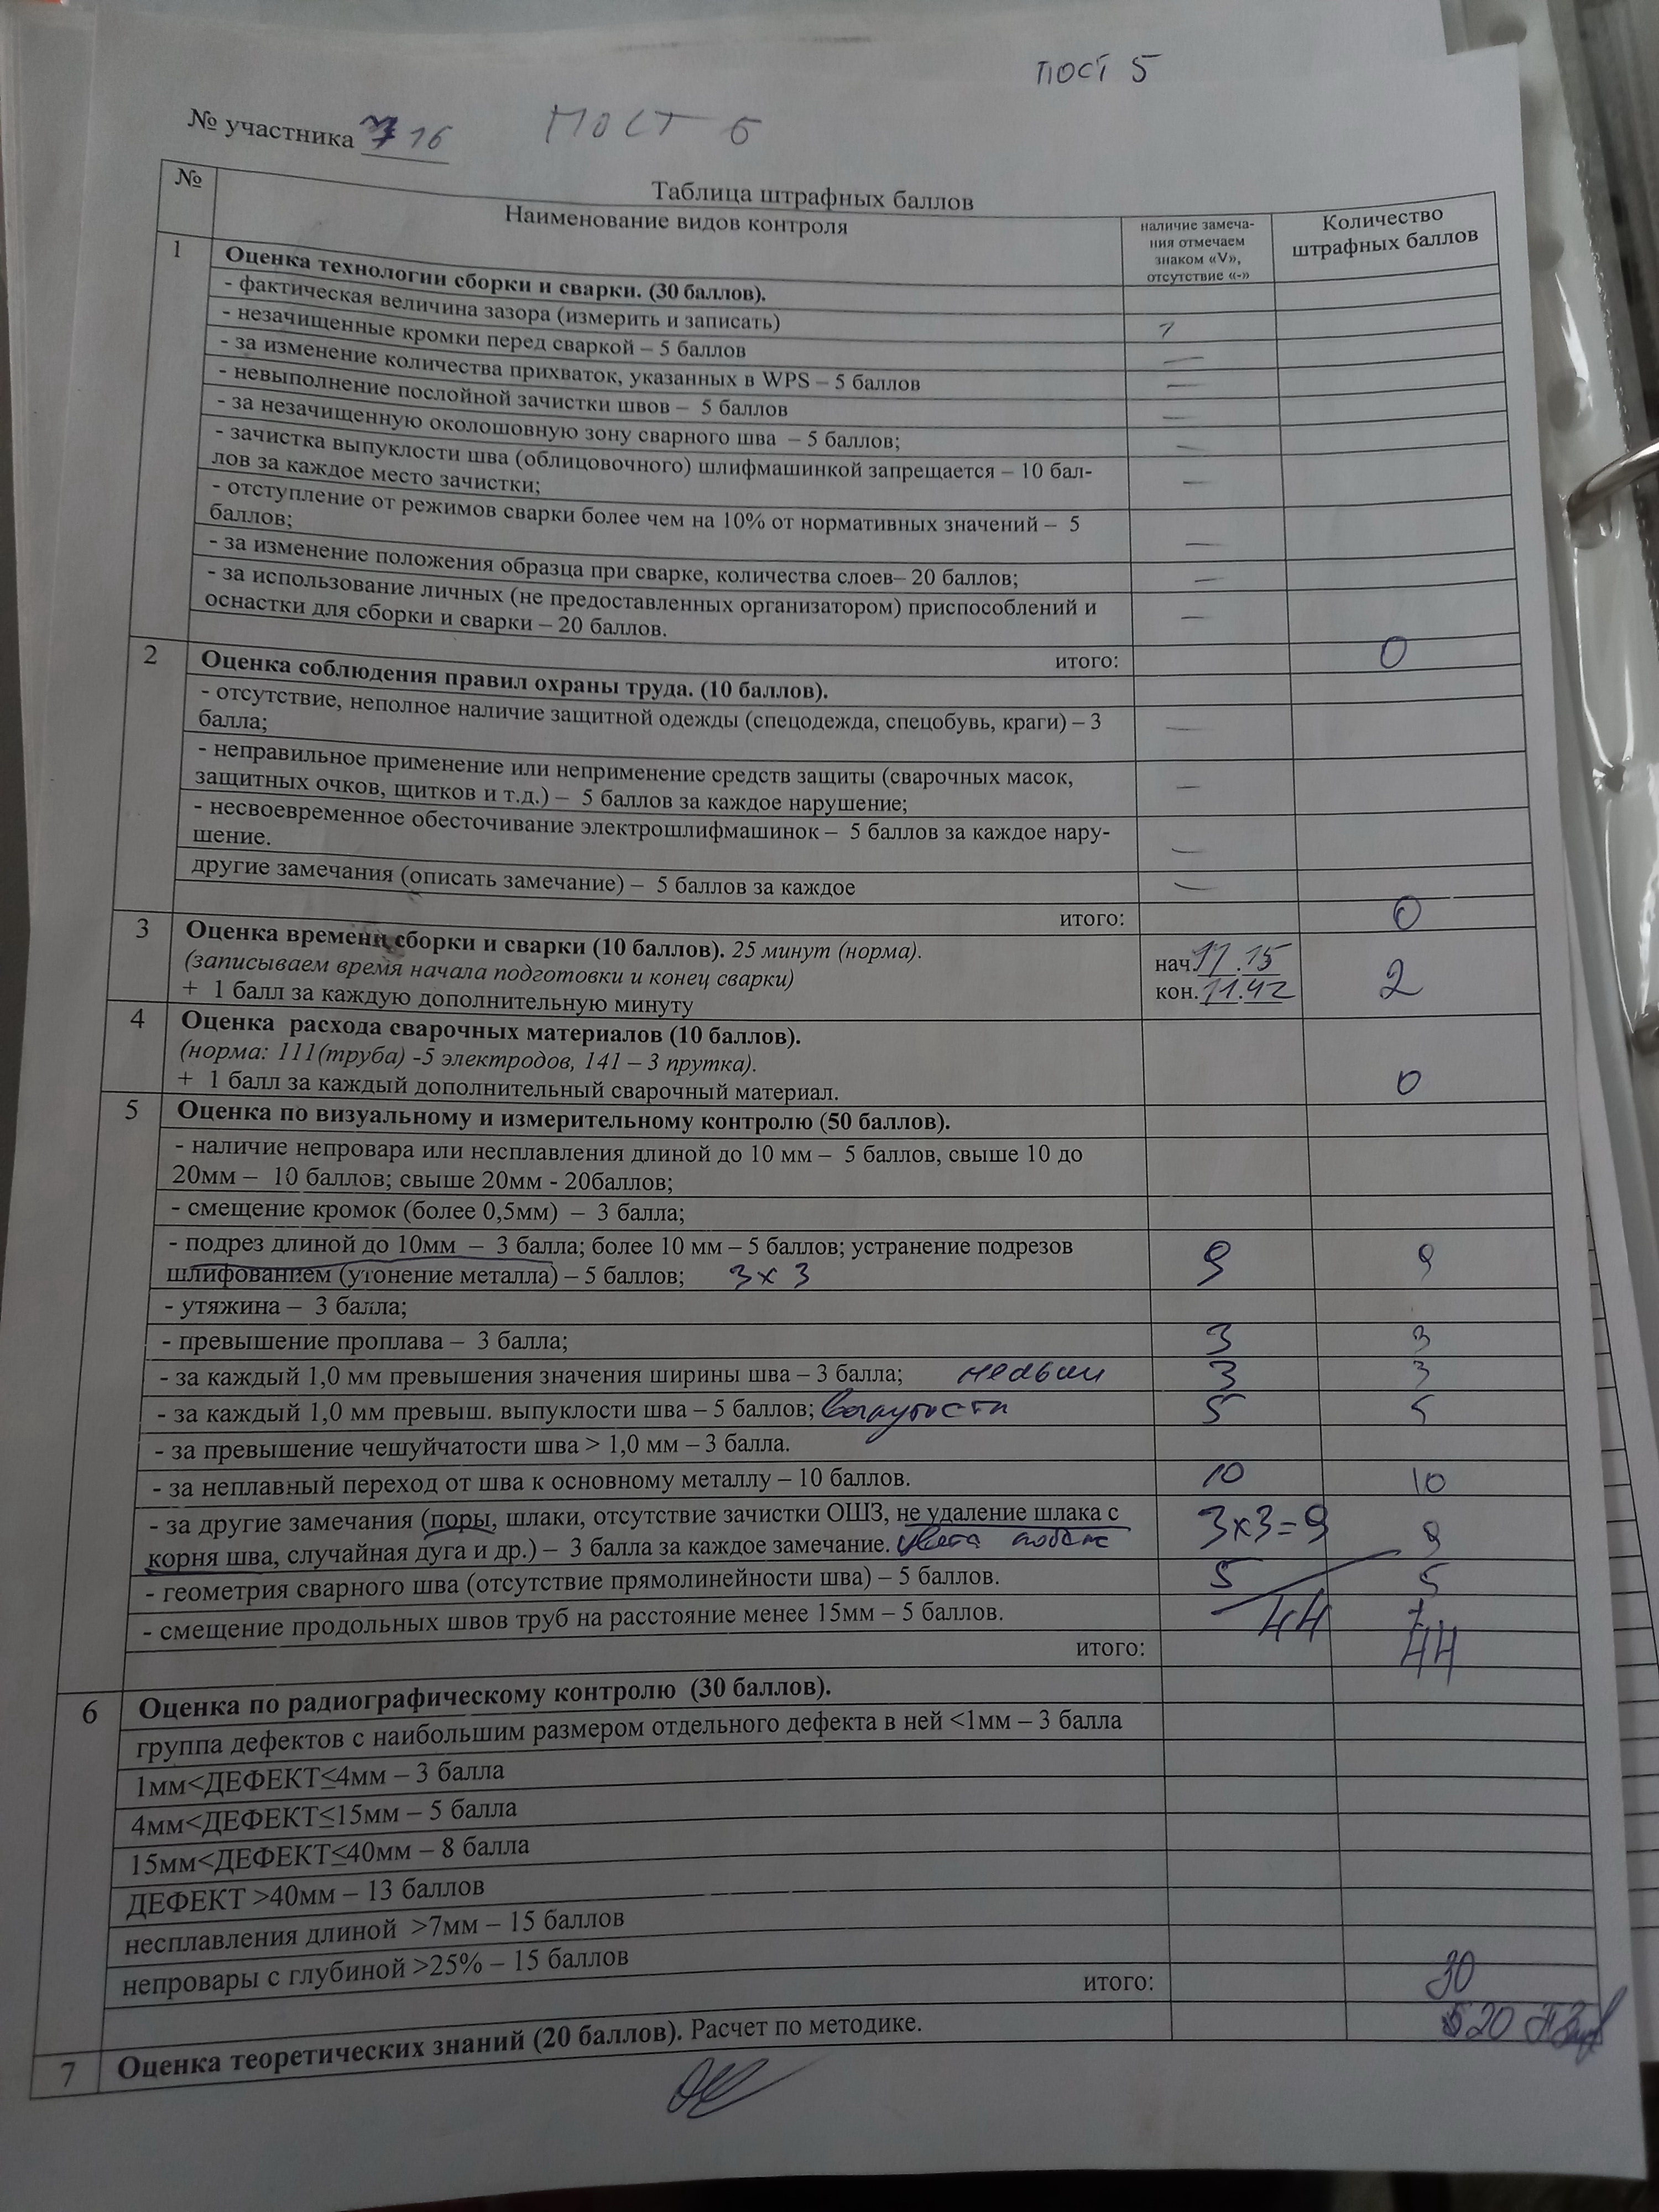 ПОСТ 5
№ участника 16 ПОСТ 6
Таблица штрафных баллов
№ Наименование видов контроля наличие замеча-
ния отмечаем
знаком «V»,
отсутствие «-» Количество
штрафных баллов
1 Оценка технологии сборки и сварки. (30 баллов).
- фактическая величина зазора (измерить и записать)
- незачищенные кромки перед сваркой – 5 баллов —
- за изменение количества прихваток, указанных в WPS – 5 баллов —
- невыполнение послойной зачистки швов – 5 баллов —
- за незачищенную околошовную зону сварного шва – 5 баллов; —
- зачистка выпуклости шва (облицовочного) шлифмашинкой запрещается – 10 бал-
лов за каждое место зачистки; —
- отступление от режимов сварки более чем на 10% от нормативных значений – 5
баллов; —
- за изменение положения образца при сварке, количества слоев– 20 баллов; —
- за использование личных (не предоставленных организатором) приспособлений и
оснастки для сборки и сварки – 20 баллов. —
итого: 0
2 Оценка соблюдения правил охраны труда. (10 баллов).
- отсутствие, неполное наличие защитной одежды (спецодежда, спецобувь, краги) – 3
балла; —
- неправильное применение или неприменение средств защиты (сварочных масок,
защитных очков, щитков и т.д.) – 5 баллов за каждое нарушение; —
- несвоевременное обесточивание электрошлифмашинок – 5 баллов за каждое нару-
шение. —
другие замечания (описать замечание) – 5 баллов за каждое —
итого: 0
3 Оценка времени сборки и сварки (10 баллов). 25 минут (норма).
(записываем время начала подготовки и конец сварки) нач. 11.15
+ 1 балл за каждую дополнительную минуту кон. 11.42 2
4 Оценка расхода сварочных материалов (10 баллов).
(норма: 111(труба) -5 электродов, 141 – 3 прутка).
+ 1 балл за каждый дополнительный сварочный материал. 0
5 Оценка по визуальному и измерительному контролю (50 баллов).
- наличие непровара или несплавления длиной до 10 мм – 5 баллов, свыше 10 до
20мм – 10 баллов; свыше 20мм - 20баллов;
- смещение кромок (более 0,5мм) – 3 балла;
- подрез длиной до 10мм – 3 балла; более 10 мм – 5 баллов; устранение подрезов
шлифованием (утонение металла) – 5 баллов; 3х3 9 9
- утяжина – 3 балла;
- превышение проплава – 3 балла; 3 3
- за каждый 1,0 мм превышения значения ширины шва – 3 балла; 3 3
- за каждый 1,0 мм превыш. выпуклости шва – 5 баллов; 5 5
- за превышение чешуйчатости шва > 1,0 мм – 3 балла.
- за неплавный переход от шва к основному металлу – 10 баллов. 10 10
- за другие замечания (поры, шлаки, отсутствие зачистки ОШЗ, не удаление шлака с
корня шва, случайная дуга и др.) – 3 балла за каждое замечание. цвета 3х3=9 9
- геометрия сварного шва (отсутствие прямолинейности шва) – 5 баллов. 5 5
- смещение продольных швов труб на расстояние менее 15мм – 5 баллов. 44
итого: 44
6 Оценка по радиографическому контролю (30 баллов).
группа дефектов с наибольшим размером отдельного дефекта в ней <1мм – 3 балла
1мм<ДЕФЕКТ≤4мм – 3 балла
4мм<ДЕФЕКТ≤15мм – 5 балла
15мм<ДЕФЕКТ≤40мм – 8 балла
ДЕФЕКТ >40мм – 13 баллов
несплавления длиной >7мм – 15 баллов
непровары с глубиной >25% – 15 баллов
итого: 30
7 Оценка теоретических знаний (20 баллов). Расчет по методике. 20